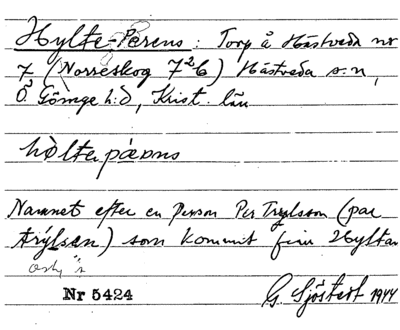 Hylte-Perens: Torp å Hästveda nr
7 (Norreskog 7²6) Hästveda s:n,
Ö. Göinge h:d, Krist. län
hòltapǽons
Namnet efter en person Per Trylsson (par
trýlsan) som kommit från Hyltan
Osby s:n
Nr 5424
G. Sjöstedt 1944